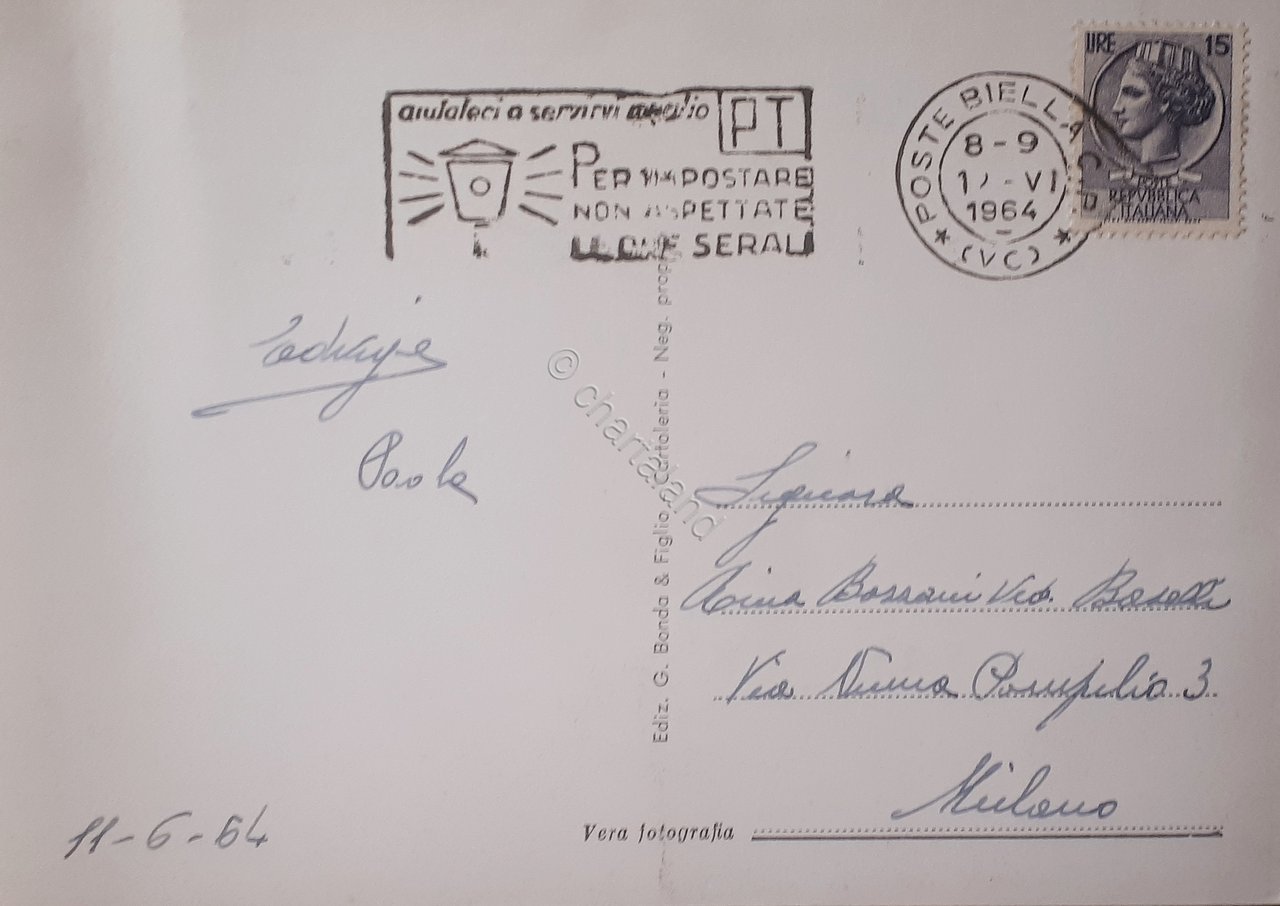 aiutateci a servirvi meglio
PT
PER IMPOSTARE
NON ASPETTATE
LE ORE SERALI
POSTE BIELLA
8-9
VI
1964
(VC)
LIRE 15
REPVBBLICA
ITALIANA
Paola
11-6-64
© chartaland
Ediz. G. Banda & Figlio, Cartoleria - Neg. prop.
Signora
Bossani Ved. Boselli
Via Numa Pompilio 3
Milano
Vera fotografia